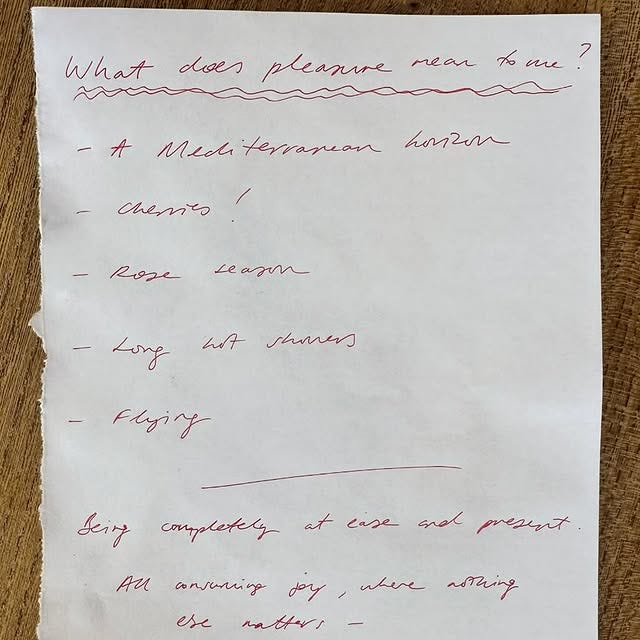 What does pleasure mean to me?
- A Mediterranean horizon
- Cherries!
- Rose season
- Long hot showers
- Flying
Being completely at ease and present.
All consuming joy, where nothing
else matters -